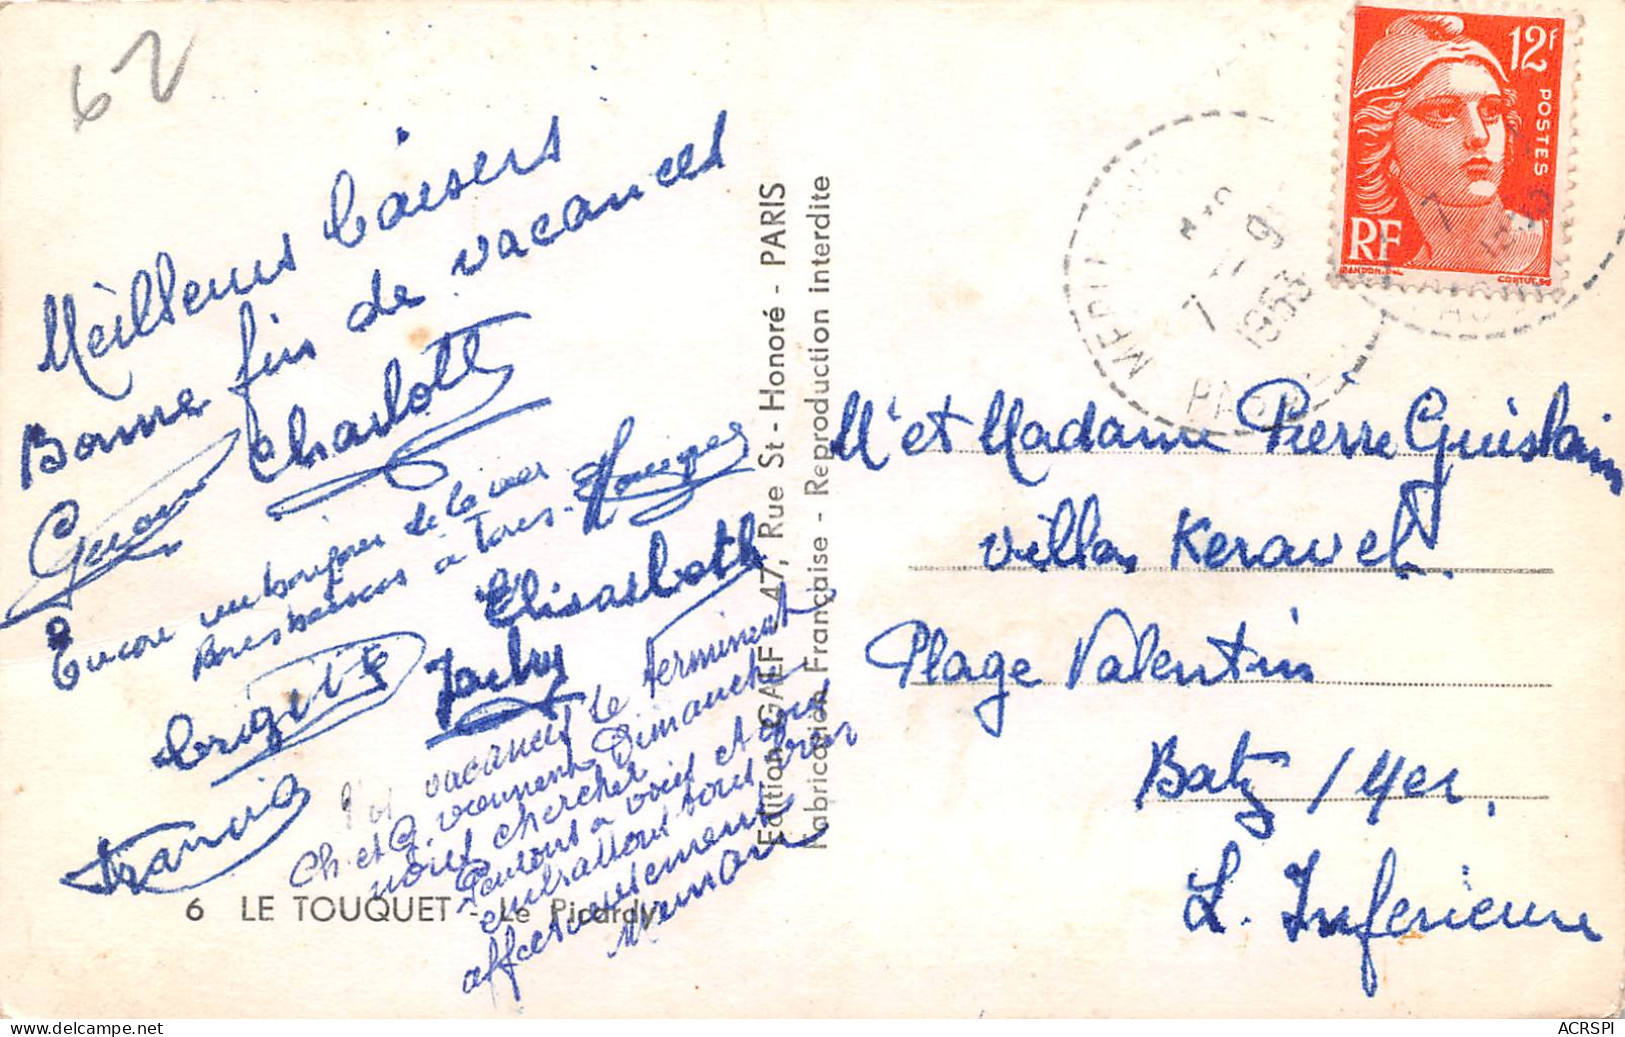 62
Meilleurs baisers
Bonne fin de vacances
Charlotte
Encore un bonjour de la mer
bises à tous.
Elisabeth
Brigitte Jacky
Francis
vacances se terminent
Ch. et G. viennent Dimanche
nous chercher
Pensons à vous et vous
embrassons tous bien
affectueusement
Maman
6 LE TOUQUET - Le Picardy
Edition GAEF 47, Rue St-Honoré - PARIS
Fabrication Française - Reproduction interdite
12F
POSTES
RF
GANDON.DEL
CORTOT.SC
7 9
1953
Mr et Madame Pierre Guislain
Villa Keravel.
Plage Valentin
Batz / Mer.
L. Inferieure
ACRSPI